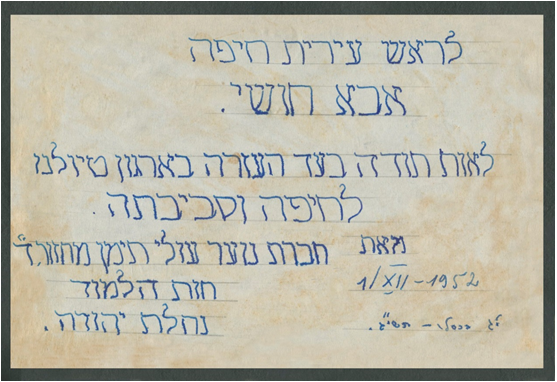 לראש עירית חיפה
אבא חושי.
לאות תודה בעד העזרה בארגון טיולנו
לחיפה וסביבתה.
מאת חברת נוער עולי תימן מחזור ד'
חות הלמוד
נחלת יהודה.
1/XII-1952
יג בכסלו – תשי"ג.